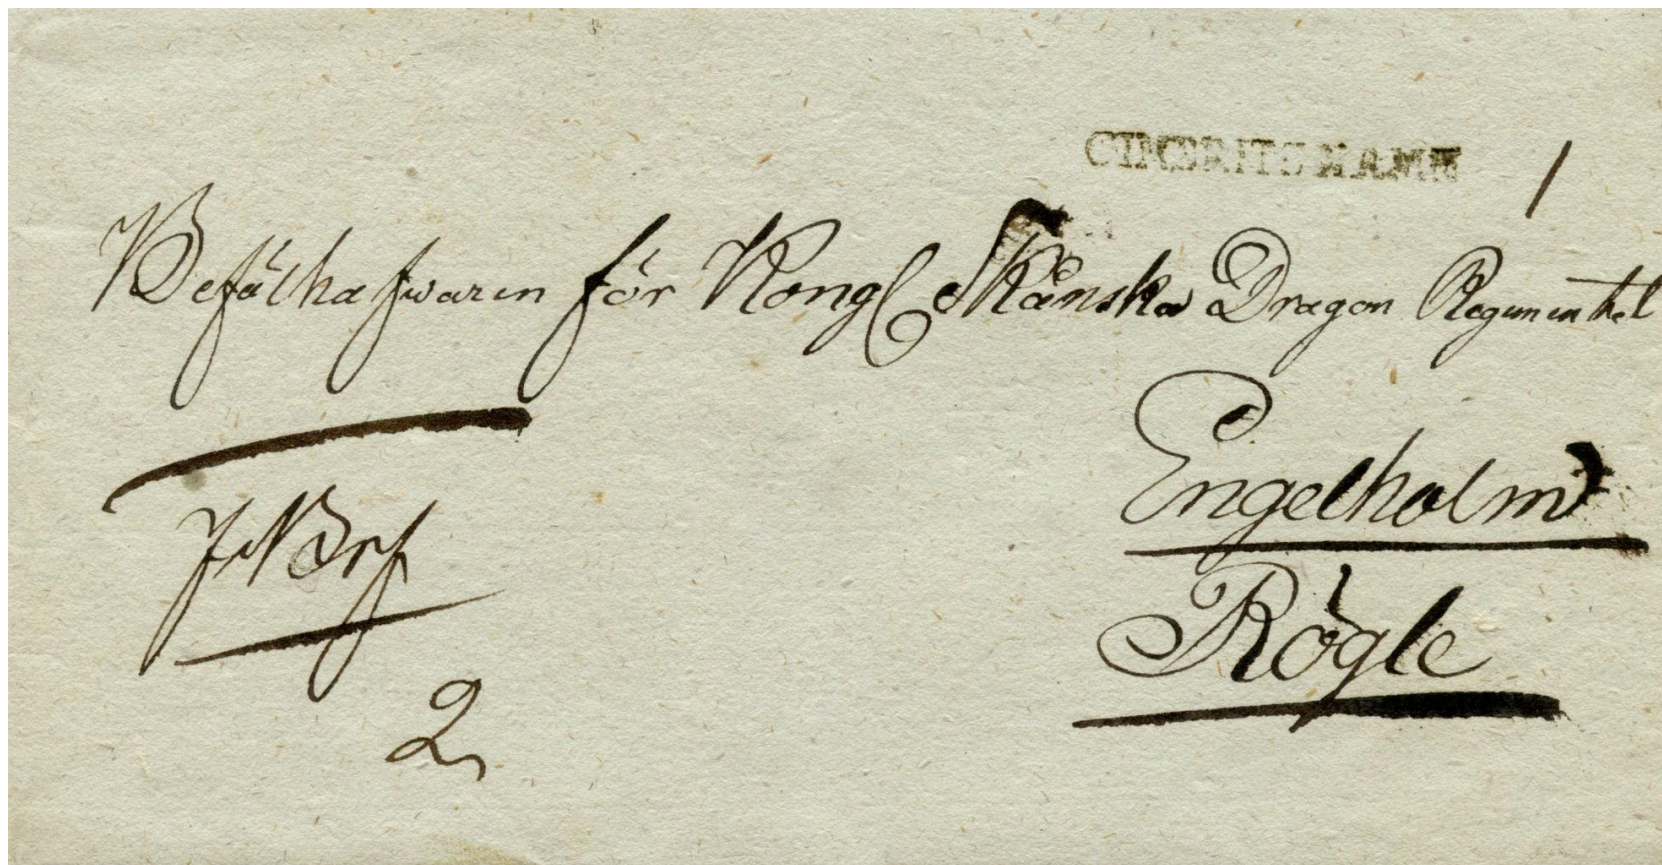 CIMBRITSHAMN
1
Befälhafwaren för Kongl Skånska Dragon Regimentet
Engelholm
Rögle
2